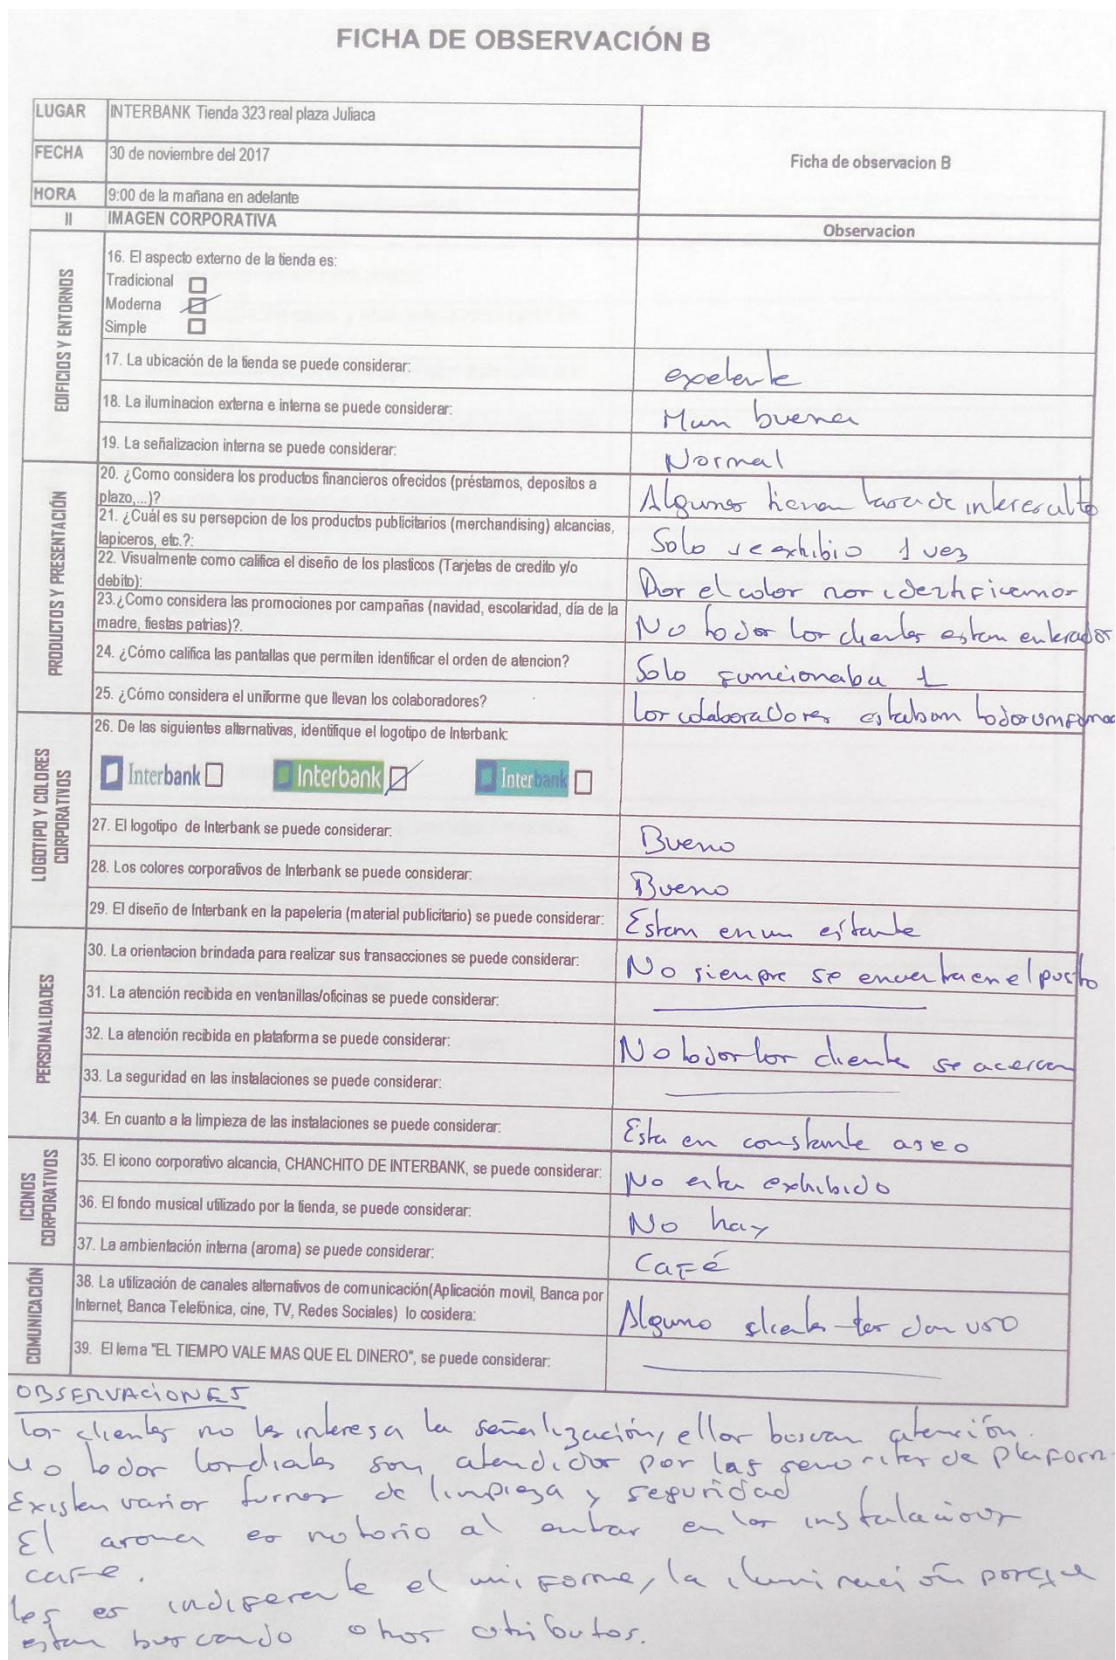 FICHA DE OBSERVACIÓN B
LUGAR INTERBANK Tienda 323 real plaza Juliaca
FECHA 30 de noviembre del 2017
Ficha de observacion B
HORA 9:00 de la mañana en adelante
II IMAGEN CORPORATIVA Observacion
EDIFICIOS Y ENTORNOS
16. El aspecto externo de la tienda es:
Tradicional
Moderna
Simple
17. La ubicación de la tienda se puede considerar: expelente
18. La iluminacion externa e interna se puede considerar: Mun buena
19. La señalizacion interna se puede considerar: Normal
PRODUCTOS Y PRESENTACIÓN
20. ¿Como considera los productos financieros ofrecidos (préstamos, depositos a
plazo,...)? Algunos tienen tasa de interes alto
21. ¿Cuál es su persepcion de los productos publicitarios (merchandising) alcancias,
lapiceros, etc.?: Solo se exhibio 1 vez
22. Visualmente como califica el diseño de los plasticos (Tarjetas de credito y/o
debito): Por el color nos identificamos
23.¿Como considera las promociones por campañas (navidad, escolaridad, día de la
madre, fiestas patrias)?. No todos los clientes estan enterados
24. ¿Cómo califica las pantallas que permiten identificar el orden de atencion? Solo funcionaba 1
25. ¿Cómo considera el uniforme que llevan los colaboradores? los colaboradores estaban todos
LOGOTIPO Y COLORES
CORPORATIVOS
26. De las siguientes alternativas, identifique el logotipo de Interbank:
Interbank Interbank Interbank
27. El logotipo de Interbank se puede considerar: Bueno
28. Los colores corporativos de Interbank se puede considerar: Bueno
29. El diseño de Interbank en la papeleria (material publicitario) se puede considerar: Estan en un estante
PERSONALIDADES
30. La orientacion brindada para realizar sus transacciones se puede considerar: No siempre se encuentra en el puesto
31. La atención recibida en ventanillas/oficinas se puede considerar:
32. La atención recibida en plataforma se puede considerar: No todos los cliente se acercan
33. La seguridad en las instalaciones se puede considerar:
34. En cuanto a la limpieza de las instalaciones se puede considerar: Esta en constante aseo
ICONOS
CORPORATIVOS
35. El icono corporativo alcancia, CHANCHITO DE INTERBANK, se puede considerar: No esta exhibido
36. El fondo musical utilizado por la tienda, se puede considerar: No hay
37. La ambientación interna (aroma) se puede considerar: Café
COMUNICACIÓN
38. La utilización de canales alternativos de comunicación(Aplicación movil, Banca por
Internet, Banca Telefónica, cine, TV, Redes Sociales) lo cosidera: Alguno clientes les dan uso
39. El lema "EL TIEMPO VALE MAS QUE EL DINERO", se puede considerar:
OBSERVACIONES
Los clientes no les interesa la señalización, ellos buscan atención.
No todos los clientes son atendidos por las senoritas de plaform
Existen varios turnos de limpieza y seguridad
El aroma es notorio al entrar en las instalaciones
cafe.
les es indiferente el uniforme, la iluminación porque
estan buscando otros atributos.